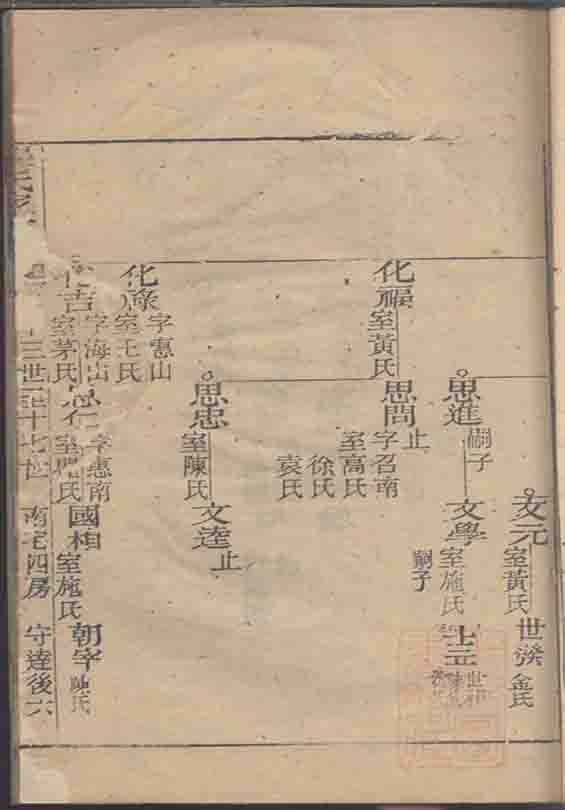 文元
室黃氏
世發
金氏
思進
嗣子
文學
室施氏
嗣子
化福
室黃氏
思問
止
字召南
室高氏
徐氏
袁氏
思忠
室陳氏
文逵
止
化祿
字憲山
室王氏
吉
字海山
室茅氏
字惠南
氏
國相
室施氏
朝宰
陳氏
三世至十七世
南宅四房
守達後六